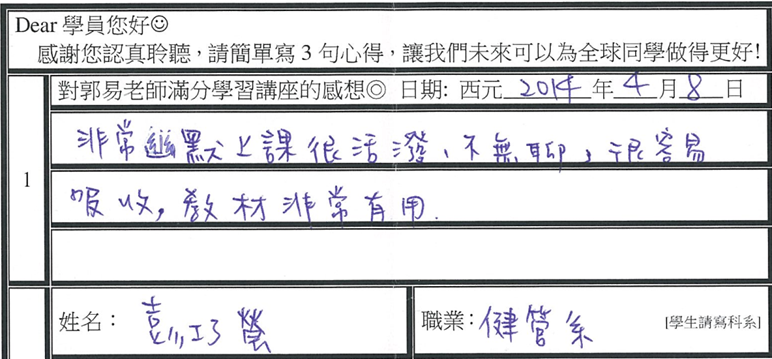 Dear 學員您好☺
感謝您認真聆聽，請簡單寫 3 句心得，讓我們未來可以為全球同學做得更好!
1
對郭易老師滿分學習講座的感想◎ 日期: 西元 2014 年 4 月 8 日
非常幽默上課很活潑、不無聊，很容易
吸收，教材非常有用.
姓名： 袁巧鶯
職業：健管系 [學生請寫科系]